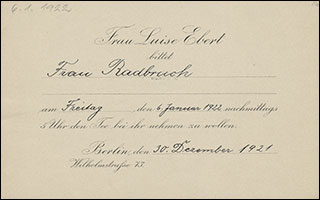 6.1.1922
Frau Luise Ebert
bittet
Frau Radbruch
am Freitag, den 6. Januar 1922 nachmittags
5 Uhr den Tee bei ihr nehmen zu wollen.
Berlin, den 30. Dezember 1921
Wilhelmstraße 73.